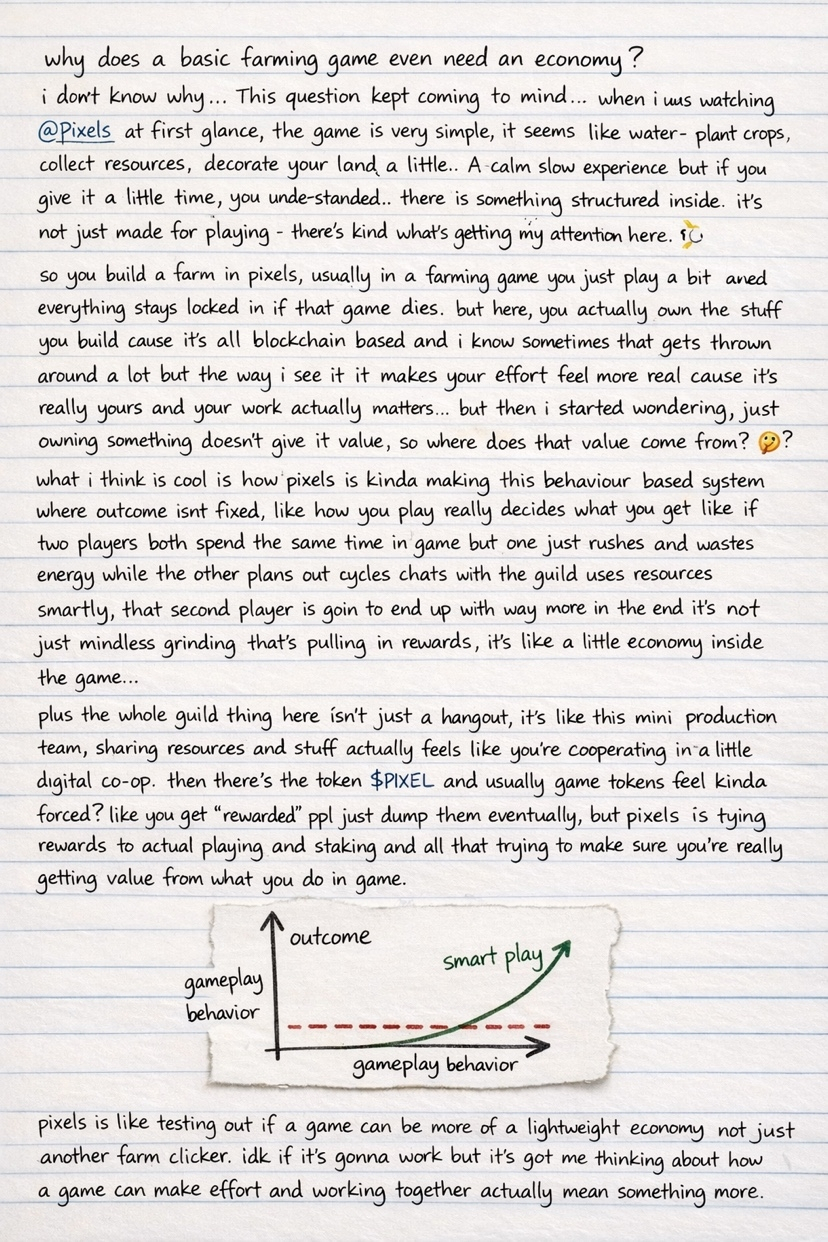 why does a basic farming game even need an economy?
i don't know why... This question kept coming to mind... when i was watching
@Pixels at first glance, the game is very simple, it seems like water- plant crops,
collect resources, decorate your land, a little.. A calm slow experience but if you
give it a little time, you unde-standed.. there is something structured inside. it's
not just made for playing - there's kind what's getting my attention here.
so you build a farm in pixels, usually in a farming game you just play a bit aned
everything stays locked in if that game dies. but here, you actually own the stuff
you build cause it's all blockchain based and i know sometimes that gets thrown
around a lot but the way i see it it makes your effort feel more real cause it's
really yours and your work actually matters... but then i started wondering, just
owning something doesn't give it value, so where does that value come from? 🤔?
what i think is cool is how pixels is kinda making this behaviour based system
where outcome isnt fixed, like how you play really decides what you get like if
two players both spend the same time in game but one just rushes and wastes
energy while the other plans out cycles chats with the guild uses resources
smartly, that second player is goin to end up with way more in the end it's not
just mindless grinding that's pulling in rewards, it's like a little economy inside
the game...
plus the whole guild thing here isn't just a hangout, it's like this mini production
team, sharing resources and stuff actually feels like you're cooperating in a little
digital co-op. then there's the token $PIXEL and usually game tokens feel kinda
forced? like you get "rewarded" ppl just dump them eventually, but pixels is tying
rewards to actual playing and staking and all that trying to make sure you're really
getting value from what you do in game.
outcome
smart play
gameplay
behavior
gameplay behavior
pixels is like testing out if a game can be more of a lightweight economy not just
another farm clicker. idk if it's gonna work but it's got me thinking about how
a game can make effort and working together actually mean something more.